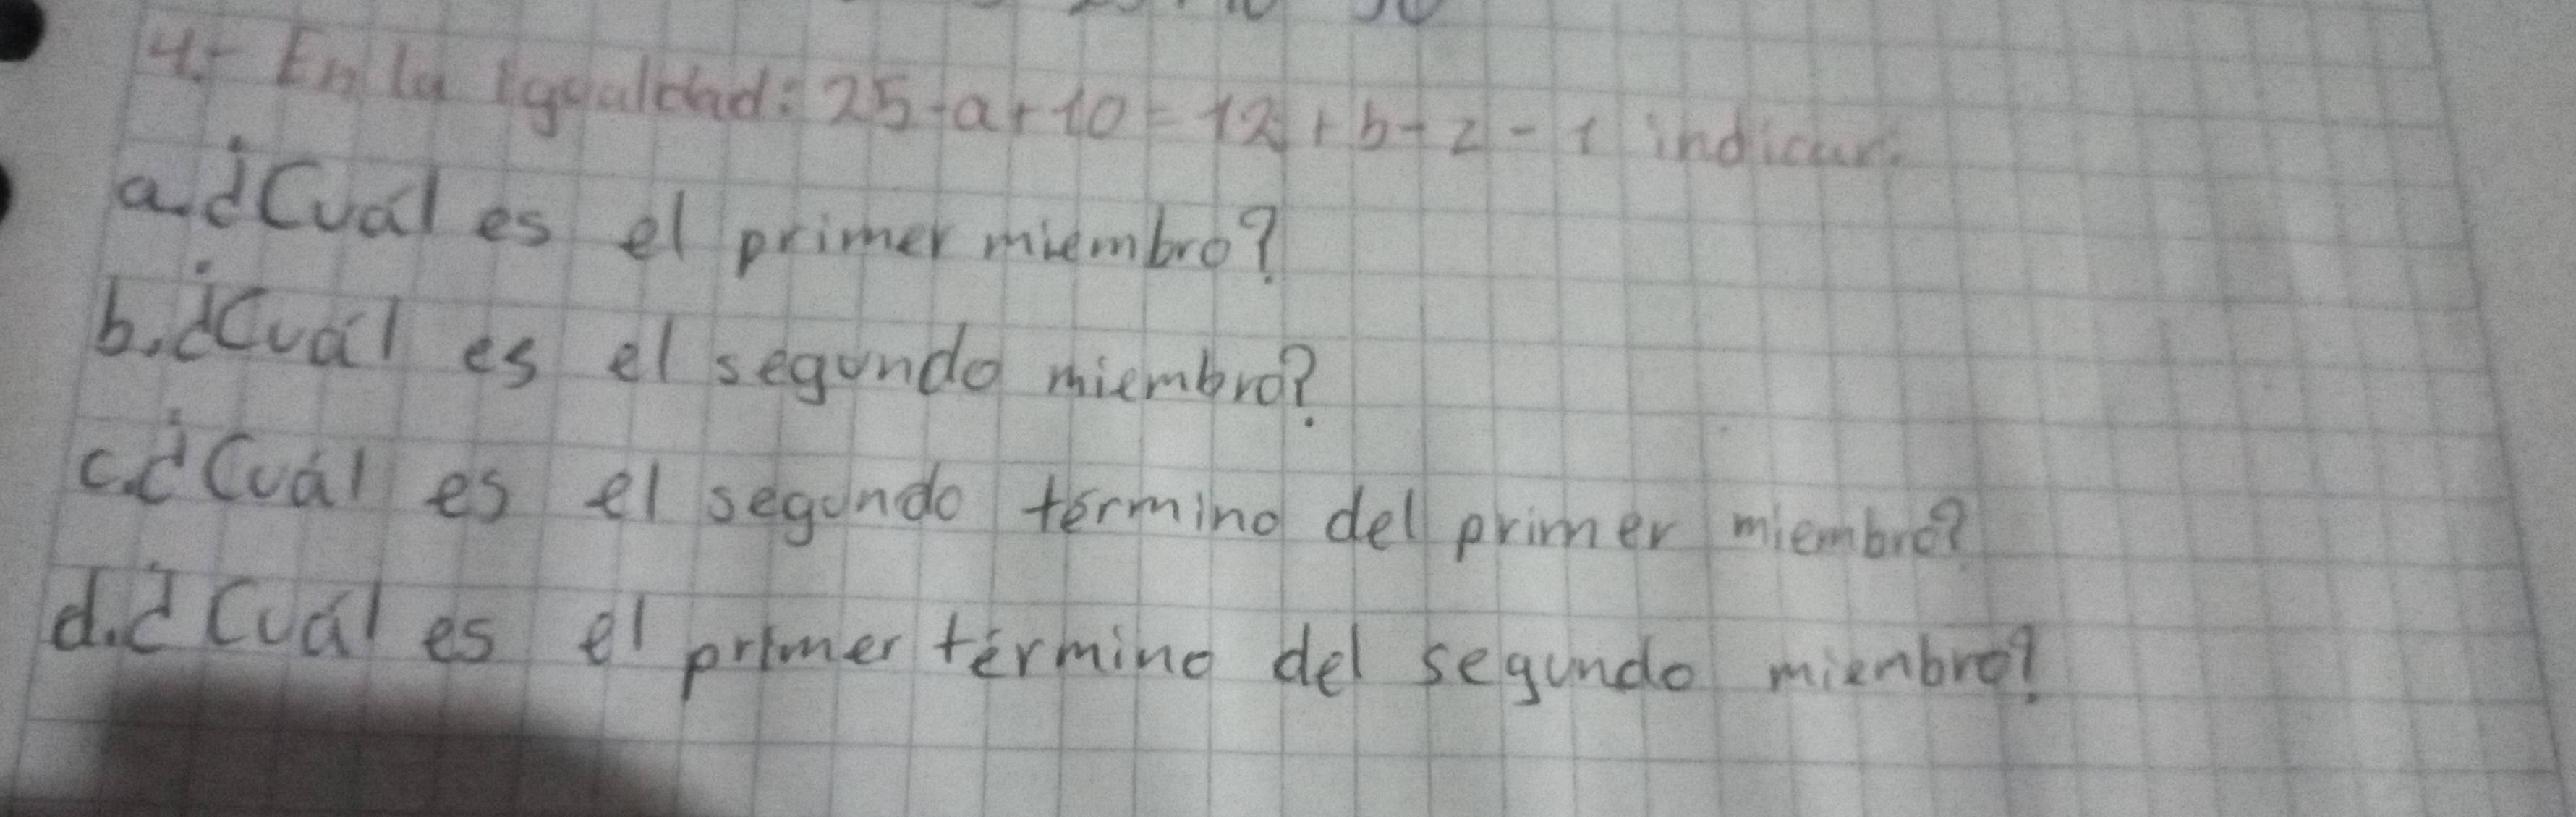 4.- En la igualdad: 25-a+10=12+b-2-1 indicar:
a.¿Cuál es el primer miembro?
b.¿Cuál es el segundo miembro?
c.¿Cuál es el segundo término del primer miembro?
d.¿Cuál es el primer término del segundo miembro?